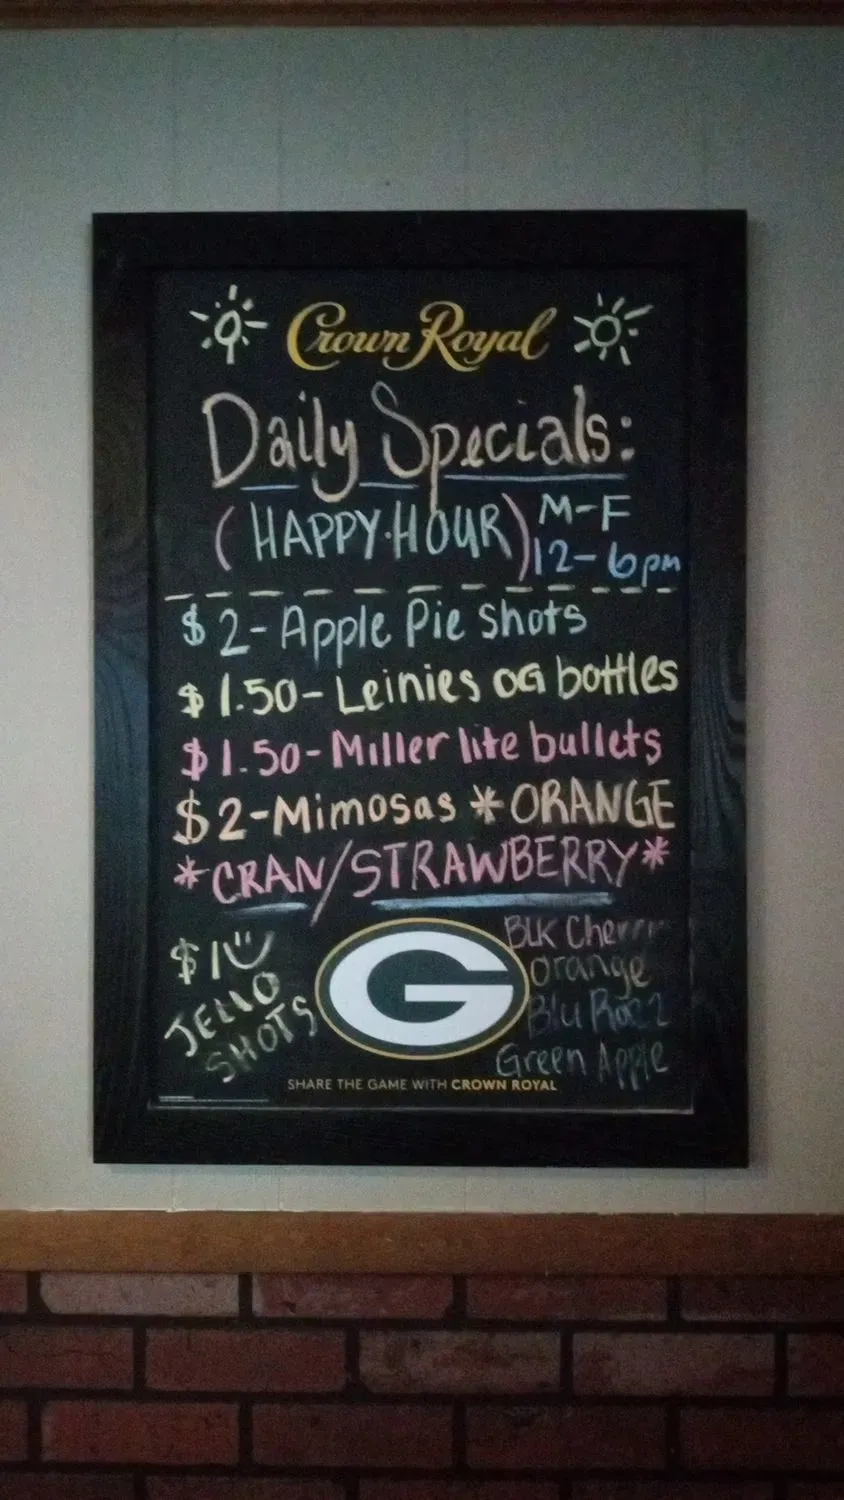 Crown Royal
Daily Specials:
(HAPPY·HOUR) M-F
12-6pm
$2-Apple Pie shots
$1.50-Leinies OG bottles
$1.50-Miller lite bullets
$2-Mimosas *ORANGE
*CRAN/STRAWBERRY*
$1
JELLO
SHOTS
G
BLK Cherry
Orange
Blu Razz
Green Apple
SHARE THE GAME WITH CROWN ROYAL